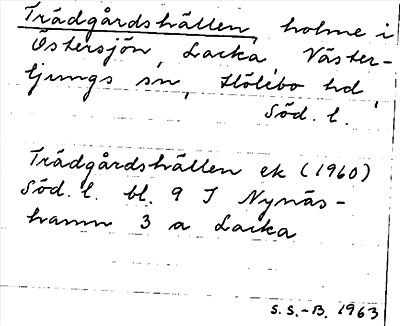 Trädgårdshällen, holme i
Östersjön, Lacka, Väster-
ljungs sn, Hölebo hd,
Söd. l.
Trädgårdshällen ek (1960)
Söd. l. bl. 9 I Nynäs-
hamn 3 a Lacka
S.S.-B. 1963